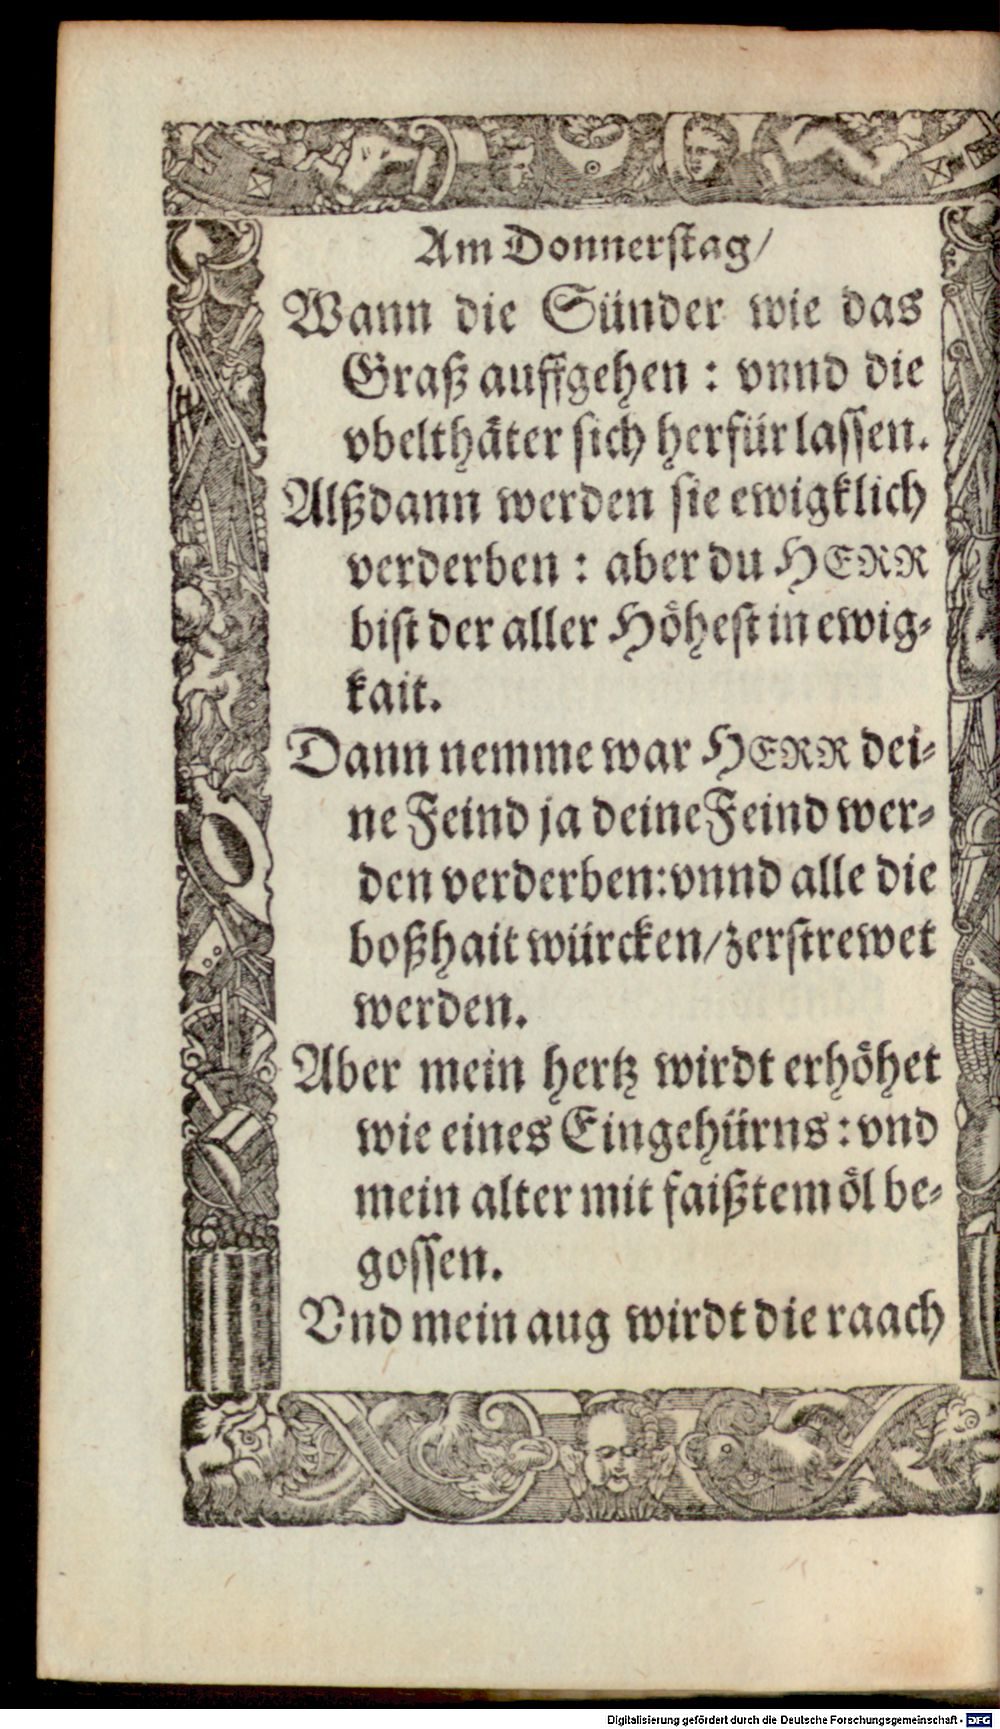 Am Donnerstag/
Wann die Sünder wie das
Graß auffgehen : vnnd die
vbelthäter sich herfür lassen.
Alßdann werden sie ewigklich
verderben : aber du HERR
bist der aller Höhest in ewig-
kait.
Dann nemme war HERR dei-
ne Feind ja deine Feind wer-
den verderben: vnnd alle die
boßhait würcken/ zerstrewet
werden.
Aber mein hertz wirdt erhöhet
wie eines Eingehürns : vnd
mein alter mit faißtem öl be-
gossen.
Vnd mein aug wirdt die raach
Digitalisierung gefördert durch die Deutsche Forschungsgemeinschaft - DFG